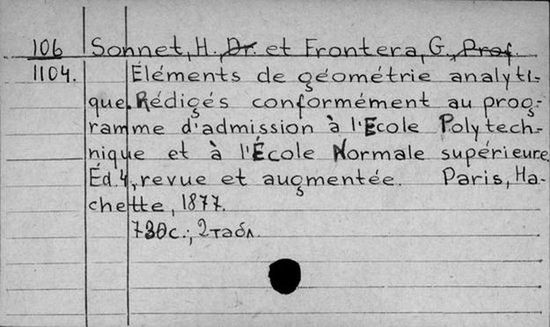 106 Sonnet, H., Dr. et Frontera, G., Prof.
1104. Éléments de géométrie analyti-
que. Rédigés conformément au prog-
ramme d'admission à l'Ecole Polytech-
nique et à l'École Normale supérieure.
Éd. 4, revue et augmentée. Paris, Ha-
chette, 1877.
730 с.; 2 табл.